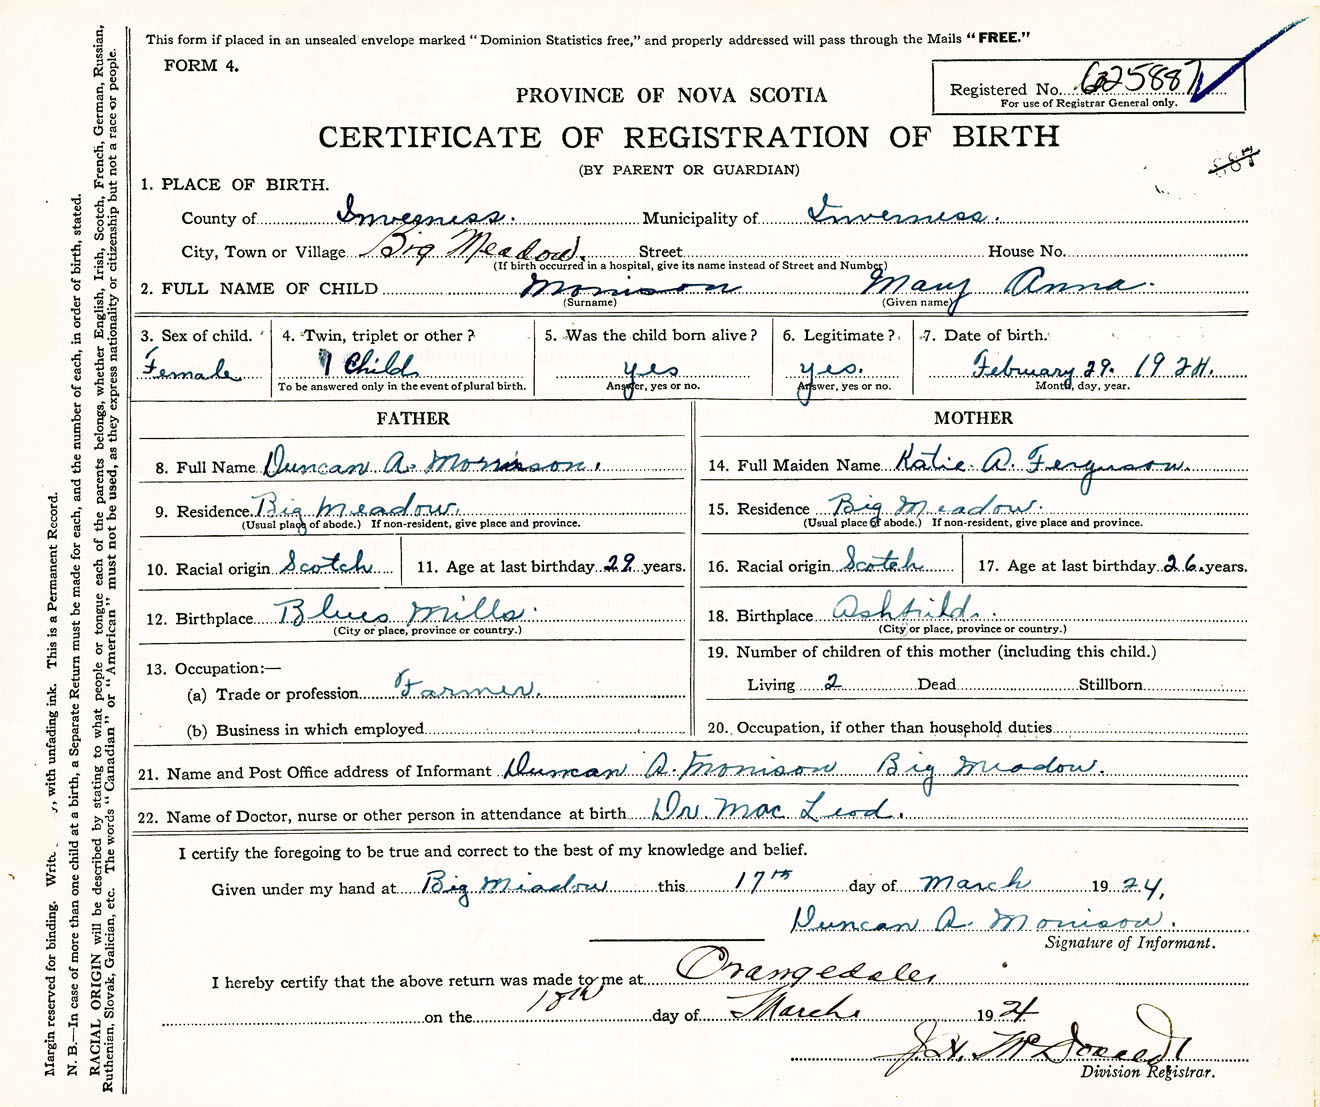 This form if placed in an unsealed envelope marked "Dominion Statistics free," and properly addressed will pass through the Mails "FREE."
FORM 4.
Registered No. 625887
For use of Registrar General only.
PROVINCE OF NOVA SCOTIA
CERTIFICATE OF REGISTRATION OF BIRTH
(BY PARENT OR GUARDIAN)
887
1. PLACE OF BIRTH.
County of Inverness. Municipality of Inverness.
City, Town or Village Big Meadow. Street House No.
(If birth occurred in a hospital, give its name instead of Street and Number)
2. FULL NAME OF CHILD Morrison Mary Anna.
(Surname) (Given name)
3. Sex of child. 4. Twin, triplet or other? 5. Was the child born alive? 6. Legitimate? 7. Date of birth.
Female 1 Child yes yes. February 29. 1924.
To be answered only in the event of plural birth. Answer, yes or no. Answer, yes or no. Month, day, year.
FATHER MOTHER
8. Full Name Duncan A. Morrison. 14. Full Maiden Name Katie A. Ferguson.
9. Residence Big Meadow. 15. Residence Big Meadow.
(Usual place of abode.) If non-resident, give place and province. (Usual place of abode.) If non-resident, give place and province.
10. Racial origin Scotch 11. Age at last birthday 29 years. 16. Racial origin Scotch 17. Age at last birthday 26 years.
12. Birthplace Blues Mills. 18. Birthplace Ashfield.
(City or place, province or country.) (City or place, province or country.)
13. Occupation:— 19. Number of children of this mother (including this child.)
(a) Trade or profession Farmer. Living 2 Dead Stillborn
(b) Business in which employed 20. Occupation, if other than household duties
21. Name and Post Office address of Informant Duncan A. Morrison Big Meadow.
22. Name of Doctor, nurse or other person in attendance at birth Dr. Mac Leod.
I certify the foregoing to be true and correct to the best of my knowledge and belief.
Given under my hand at Big Meadow this 17th day of March 1924.
Duncan A. Morrison.
Signature of Informant.
I hereby certify that the above return was made to me at Orangedale
on the 18th day of March 1924
J. H. McDonald
Division Registrar.
Margin reserved for binding. with unfading ink. This is a Permanent Record.
N. B.—In case of more than one child at a birth, a Separate Return must be made for each, and the number of each, in order of birth, stated.
RACIAL ORIGIN will be described by stating to what people or tongue each of the parents belongs, whether English, Irish, Scotch, French, German, Russian,
Ruthenian, Slovak, Galician, etc. The words "Canadian" or "American" must not be used, as they express nationality or citizenship but not a race or people.